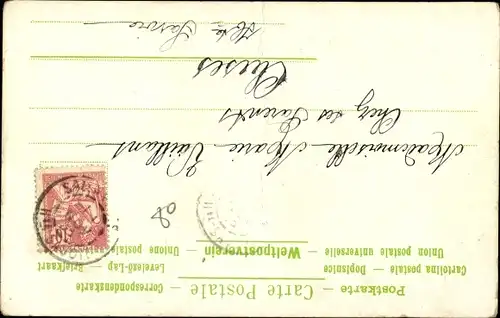 Postkarte — Carte Postale — Correspondenskarte
Cartolina postale — Dopisnice — Levelező-Lap — Briefkaart
Union postale universelle — Weltpostverein — Unione postale
Mademoiselle Marie Vaillant
Chez ses Parents
Cluses
Hte Savoie